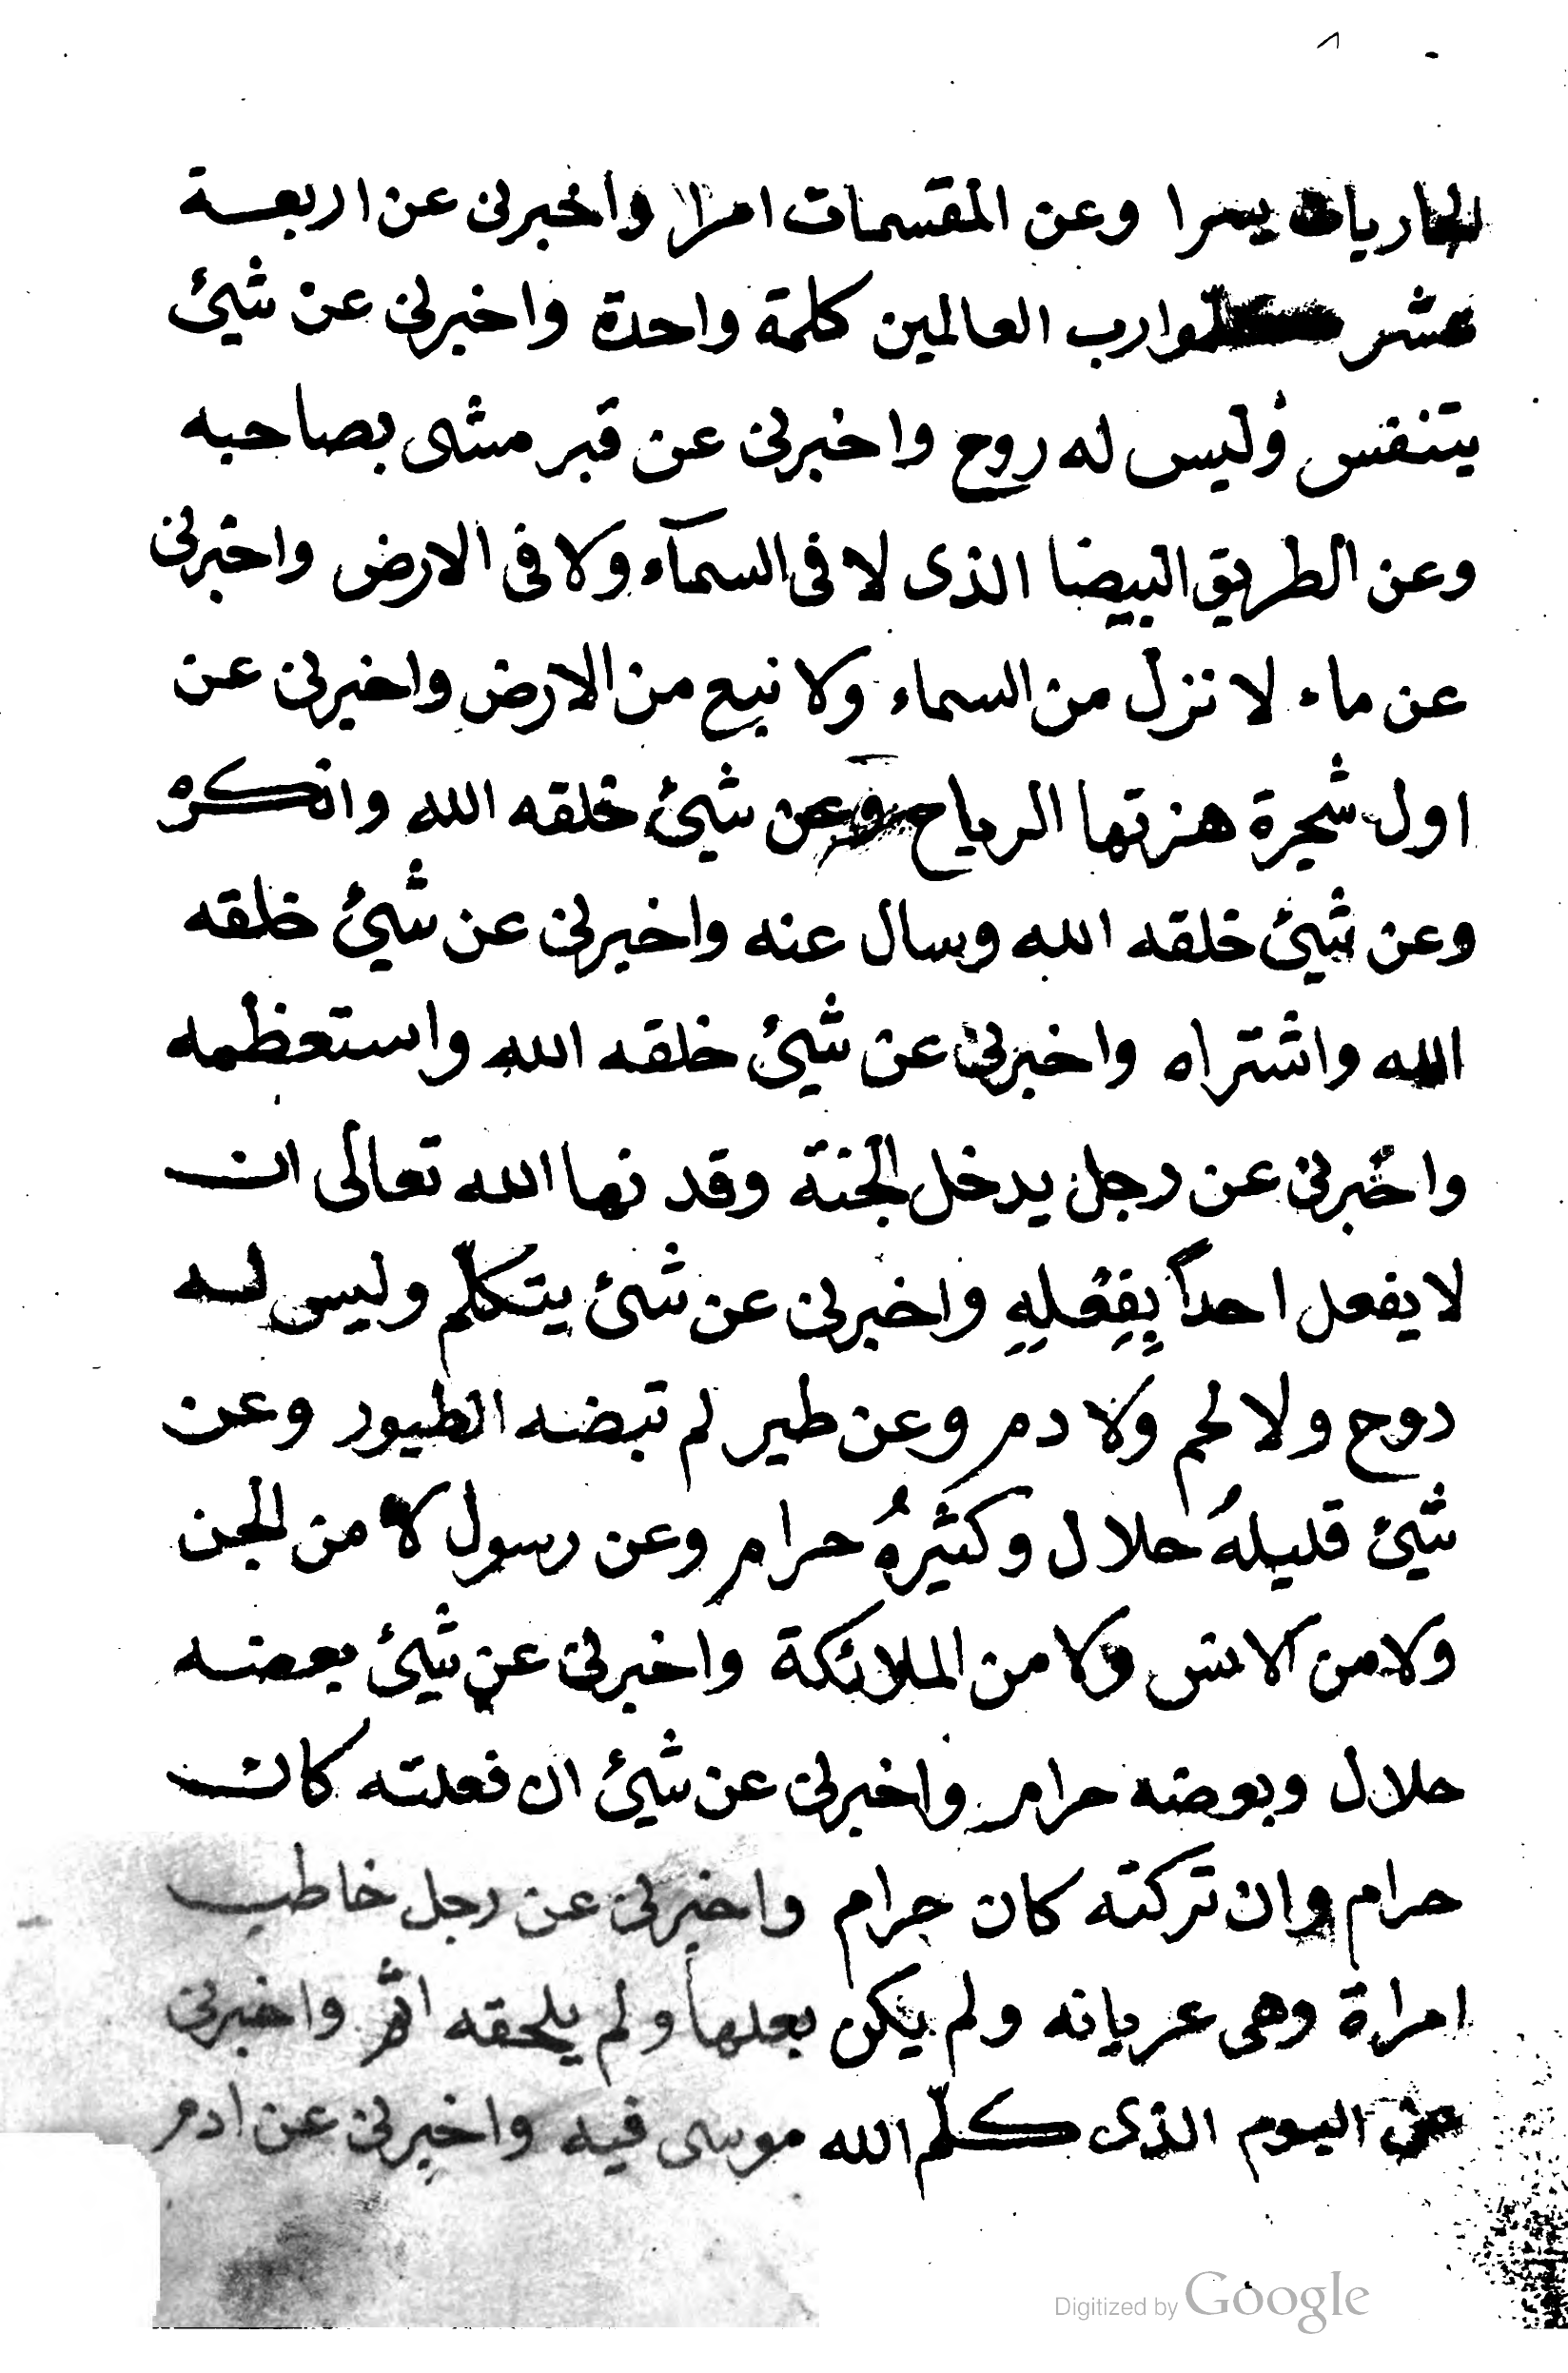 الجاريات يسرا وعن المقسمات امرا واخبرنى عن اربعة
عشر كلموا رب العالمين كلمة واحدة واخبرنى عن شيئ
يتنفس وليس له روح واخبرنى عن قبر مشى بصاحبه
وعن الطريق البيضا الذى لا فى السمآء ولا فى الارض واخبرنى
عن ماء لا نزل من السماء ولا نبع من الارض واخبرنى عن
اول شجرة هزتها الرياح وعن شيئ خلقه الله وانكره
وعن شيئ خلقه الله وسال عنه واخبرنى عن شيئ خلقه
الله واشتراه واخبرنى عن شيئ خلقه الله واستعظمه
واخبرنى عن رجل يدخل الجنة وقد نها الله تعالى ان
لا يفعل احداً بِفِعْلِهِ واخبرنى عن شئ يتكلّم وليس له
روح ولا لحم ولا دم وعن طير لم تبضه الطيور وعن
شيئ قليلهُ حلال وكثيرهُ حرام وعن رسول لا من الجن
ولا من الانس ولا من الملائكة واخبرنى عن شيئ بعضه
حلال وبعضه حرام واخبرنى عن شيئ ان فعلته كان
حرام وان تركته كان حرام واخبرنى عن رجل خاطب
امراة وهى عريانه ولم يكن بعلها ولم يلحقه اثم واخبرنى
عن اليوم الذى كلّم الله موسى فيه واخبرنى عن ادم
Digitized by Google